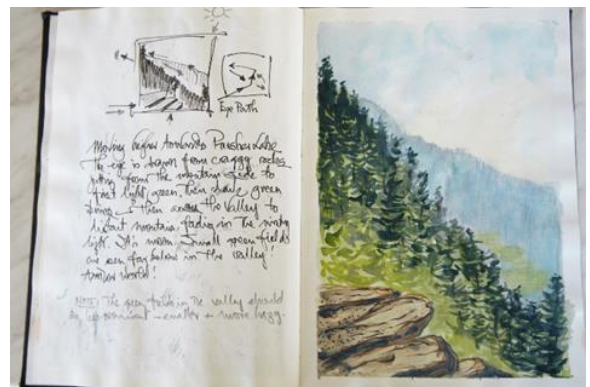 Eye Path
Moving higher towards Parsher Lake
The eye is drawn from craggy rocks
from the mountain side to
first light green, then dark green
then across the Valley to
distant mountains fading in the
light. It's noon. Small green fields
are seen far below in the valley!
Another World!
NOTE: The green fields in the valley should
be less prominent - smaller & more hazy.